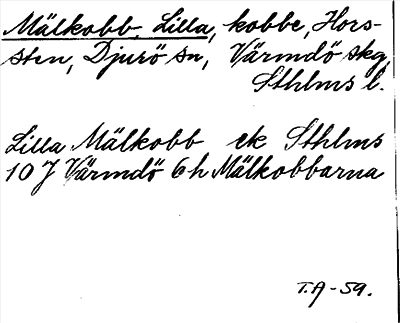 Mälkobb, Lilla, kobbe, Hors-
sten, Djurö sn, Värmdö skg
Sthlms l.
Lilla Mälkobb ek Sthlms
10 J Värmdö 6h Mälkobbarna
T.A-59.